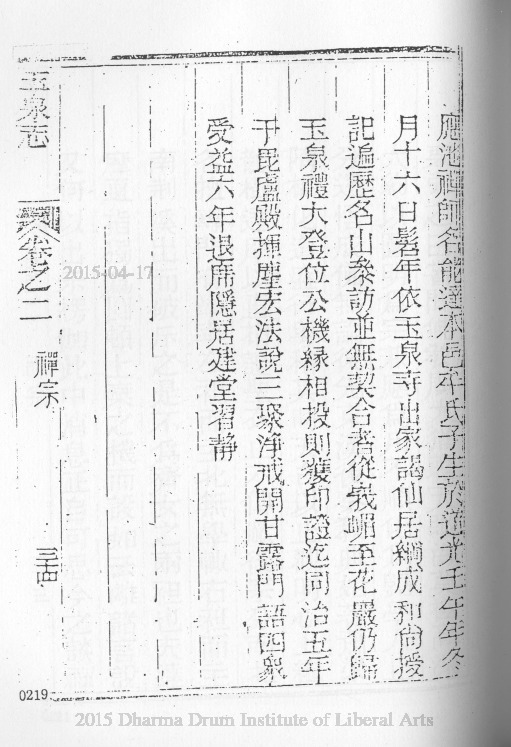 應池禪師名能達本邑牟氏子生於道光壬午年冬
月十六日髫年依玉泉寺出家謁仙居續成和尚授
記遍歷名山參訪並無契合者從峩嵋至花嚴仍歸
玉泉禮大登位公機緣相投則獲印證迄同治五年
于毘盧殿揮麈宏法說三聚淨戒開甘露門語四衆
受益六年退席隱居建堂習靜
玉泉志 卷之二 禪宗
2015-04-17
0219
2015 Dharma Drum Institute of Liberal Arts